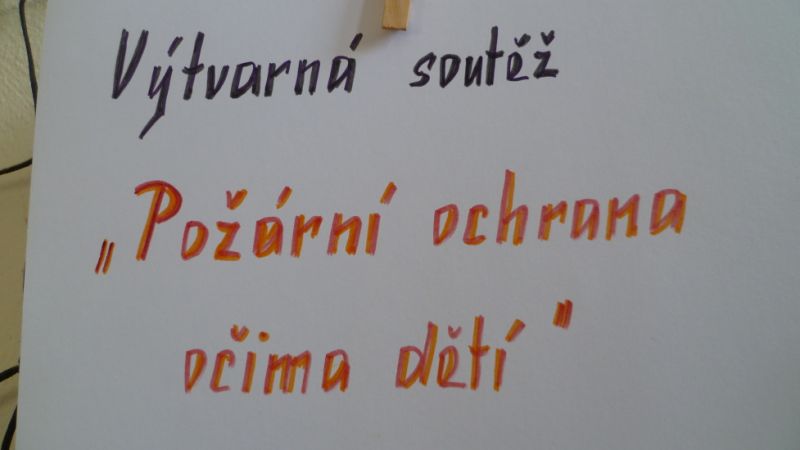 Výtvarná soutěž
„Požární ochrana
očima dětí"